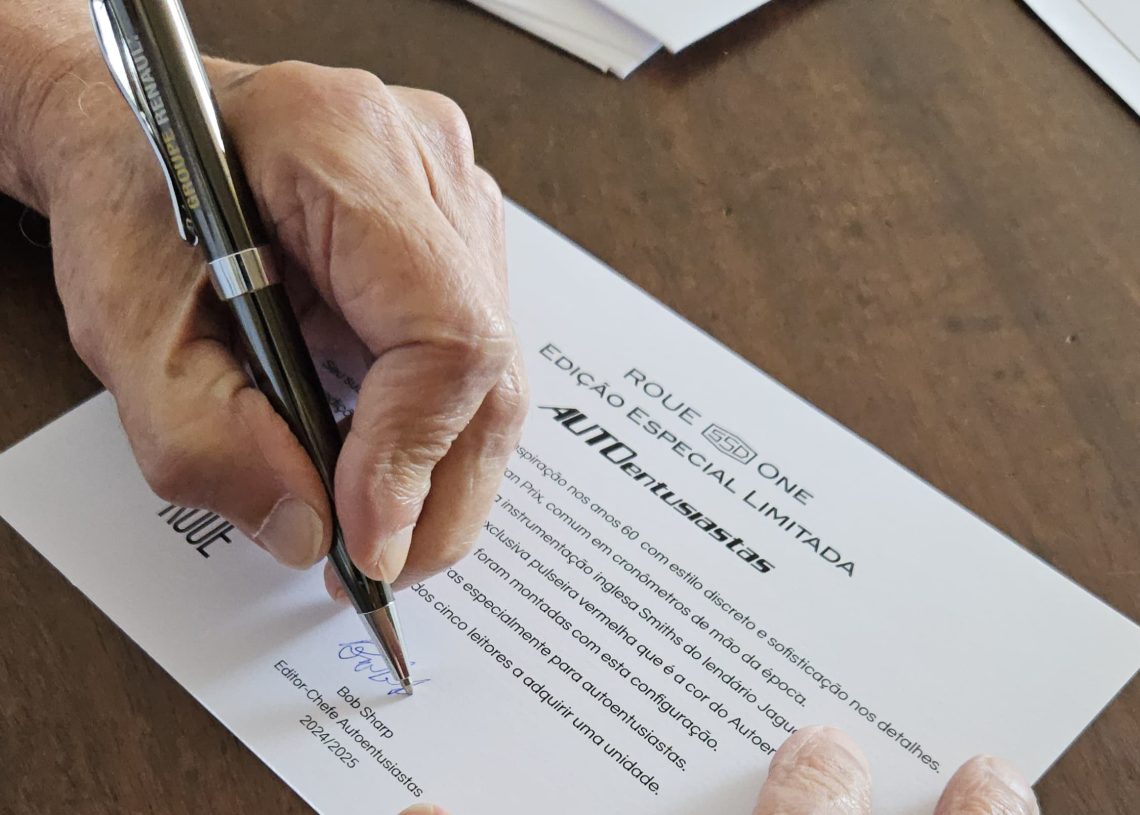 GROUPE RENAULT
ROUE SSD ONE
EDIÇÃO ESPECIAL LIMITADA
AUTOentusiastas
nos anos 60 com estilo discreto e sofisticação nos detalhes.
Prix, comum em cronômetros de mão da época.
instrumentação inglesa Smiths do lendário
pulseira vermelha que é a cor do
foram montadas com esta configuração.
especialmente para autoentusiastas.
cinco leitores a adquirir uma unidade.
Seu
ROUE
Bob Sharp
Editor-Chefe Autoentusiastas
2024/2025